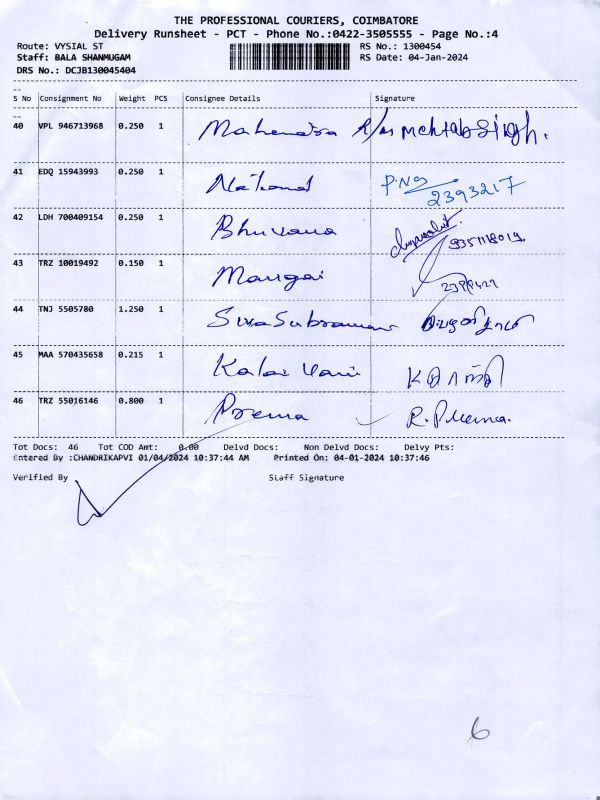 THE PROFESSIONAL COURIERS, COIMBATORE
Delivery Runsheet - PCT - Phone No.:0422-3505555 - Page No.:4
Route: VYSIAL ST RS No.: 1300454
Staff: BALA SHANMUGAM RS Date: 04-Jan-2024
DRS No.: DCJB130045404
S No Consignment No Weight PCS Consignee Details Signature
40 VPL 946713968 0.250 1 Mahendra mehtabsingh.
41 EDQ 15943993 0.250 1 National P.Ng
2393217
42 LDH 700409154 0.250 1 Bhuvana
43 TRZ 10019492 0.150 1 Mangai
44 TNJ 5505780 1.250 1 SivaSubramani
45 MAA 570435658 0.215 1 Kalai Vani
46 TRZ 55016146 0.800 1 Prema R. Prema.
Tot Docs: 46 Tot COD Amt: 0.00 Delvd Docs: Non Delvd Docs: Delvy Pts:
Entered By :CHANDRIKAPVI 01/04/2024 10:37:44 AM Printed On: 04-01-2024 10:37:46
Verified By Staff Signature
6